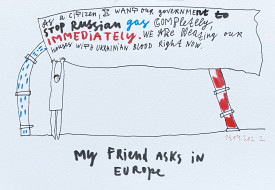 As a CITIZEN, I WANT OUR GOVERNMENT to
STOP RUSSIAN gas COMPLETELY
IMMEDIATELY. WE ARE HEATING OUR
HOUSES WITH UKRAINIAN BLOOD RIGHT NOW.
MY FRIEND ASKS IN
EUROPE